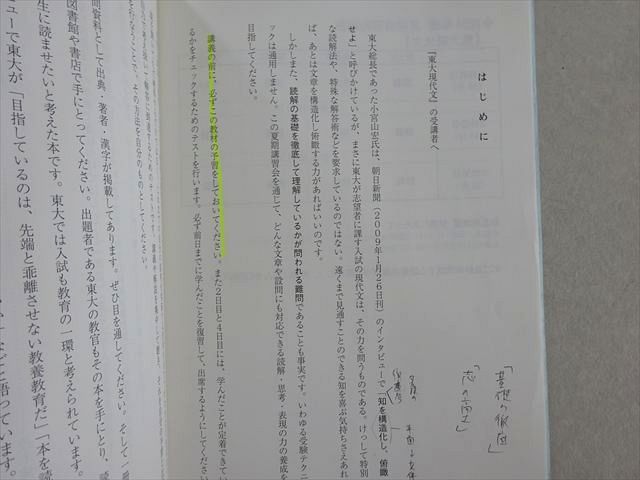 はじめに
『東大現代文』の受講者へ
東大総長であった小宮山宏氏は、朝日新聞（2009年1月26日刊）のインタビューで「知を構造化し、俯瞰
せよ」と呼びかけているが、まさに東大が志望者に課す入試の現代文は、その力を問うものである。けっして特別
な読解法や、特殊な解答術などを要求しているのではない。遠くまで見通すことのできる知を喜ぶ気持ちさえあれ
ば、あとは文章を構造化し俯瞰する力があればいいのです。
しかしまた、読解の基礎を徹底して理解しているかが問われる難問であることも事実です。いわゆる受験テクニ
ックは通用しません。この夏期講習会を通じて、どんな文章や設問にも対応できる読解・思考・表現の力の養成を
目指してください。
講義の前に、必ずこの教材の予習をしておいてください。また2日目と4日目には、学んだことが定着してい
るかをチェックするためのテストを行います。必ず前日までに学んだことを復習して、出席するようにしてください
「基礎の徹底」
「志の高さ」
として出典・著者・漢字が掲載してあります。ぜひ目を通してください。そして一
図書館や書店で手にとってください。出題者である東大の教官もその本を手にとり、読
生に読ませたいと考えた本です。東大では入試も教育の一環と考えられています。
ューで東大が「目指しているのは、先端と乖離させない教養教育だ」「本を読